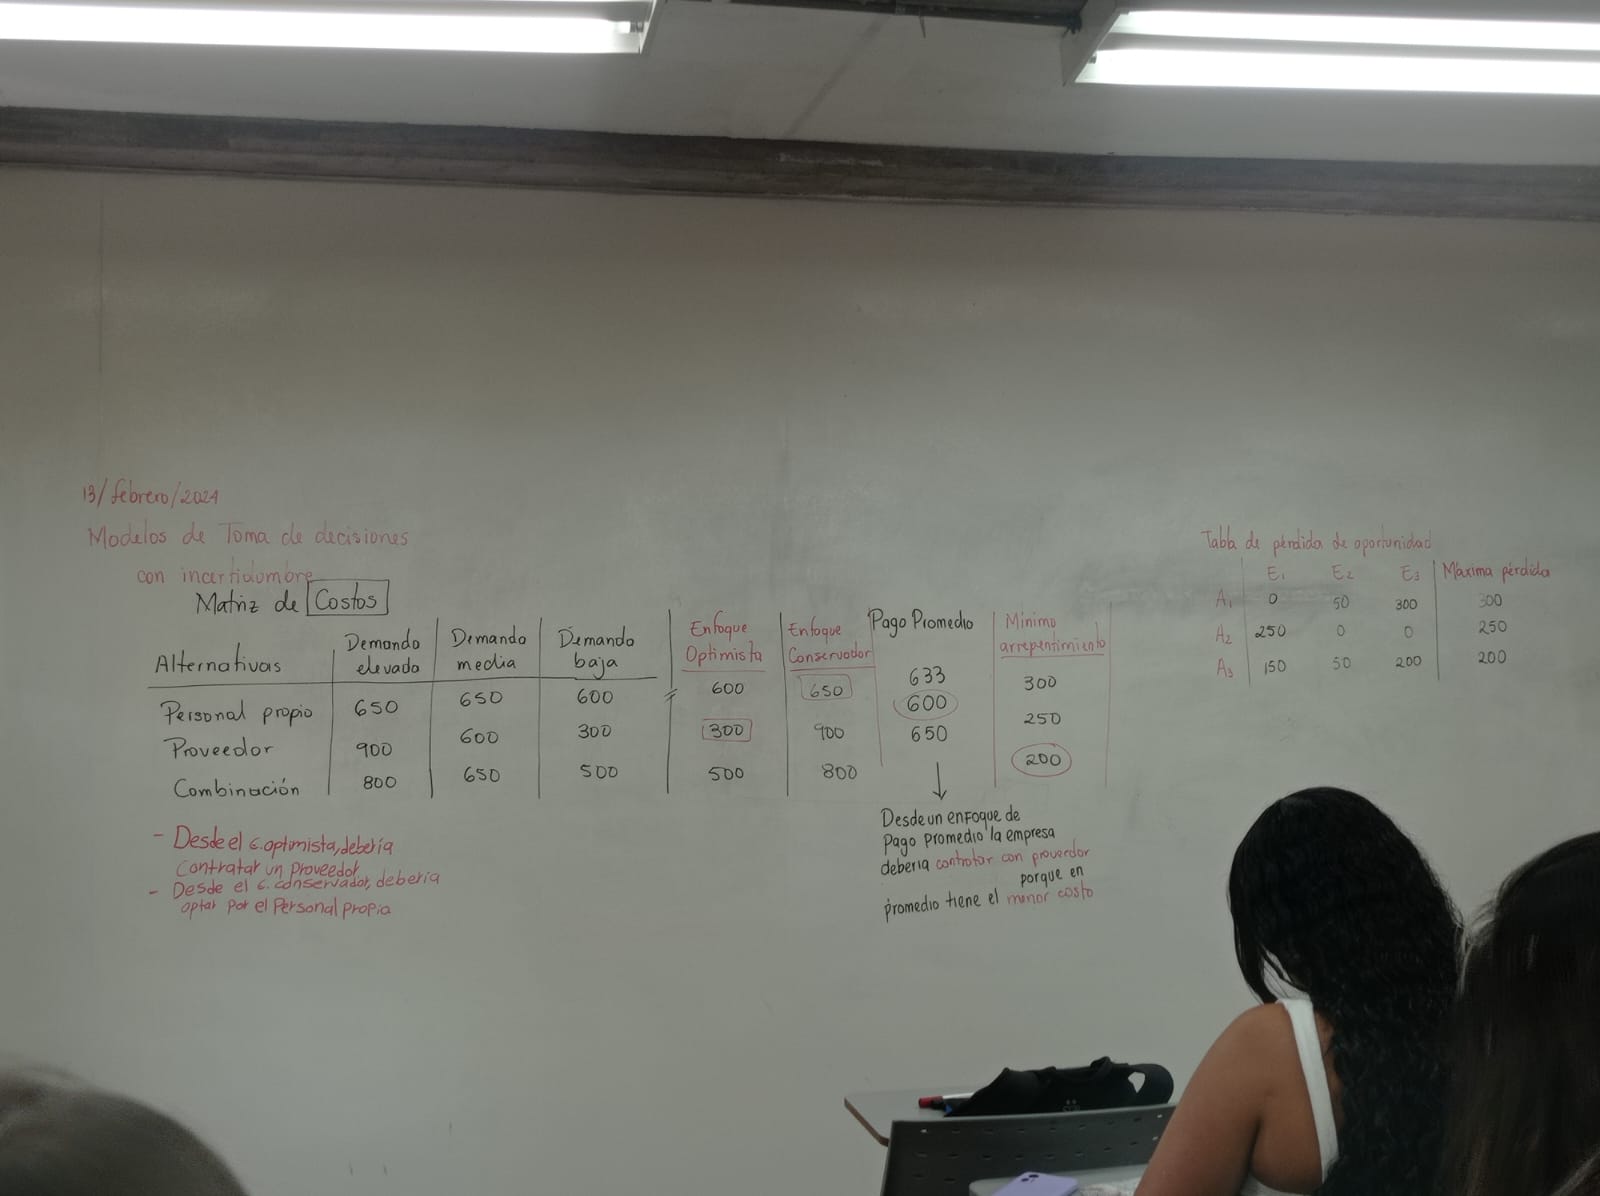 13/febrero/2024
Modelos de Toma de decisiones
con incertidumbre
Matriz de Costos
Alternativas | Demanda elevada | Demanda media | Demanda baja | Enfoque Optimista | Enfoque Conservador | Pago Promedio | Mínimo arrepentimiento
Personal propio | 650 | 650 | 600 | 600 | 650 | 633 | 300
Proveedor | 900 | 600 | 300 | 300 | 900 | 600 | 250
Combinación | 800 | 650 | 500 | 500 | 800 | 650 | 200
- Desde el e. optimista, debería
contratar un proveedor
- Desde el e. conservador, debería
optar por el Personal propia
Desde un enfoque de
Pago promedio la empresa
debería contratar con proveedor
porque en
promedio tiene el menor costo
Tabla de pérdida de oportunidad
E1 E2 E3 Máxima pérdida
A1 0 50 300 300
A2 250 0 0 250
A3 150 50 200 200